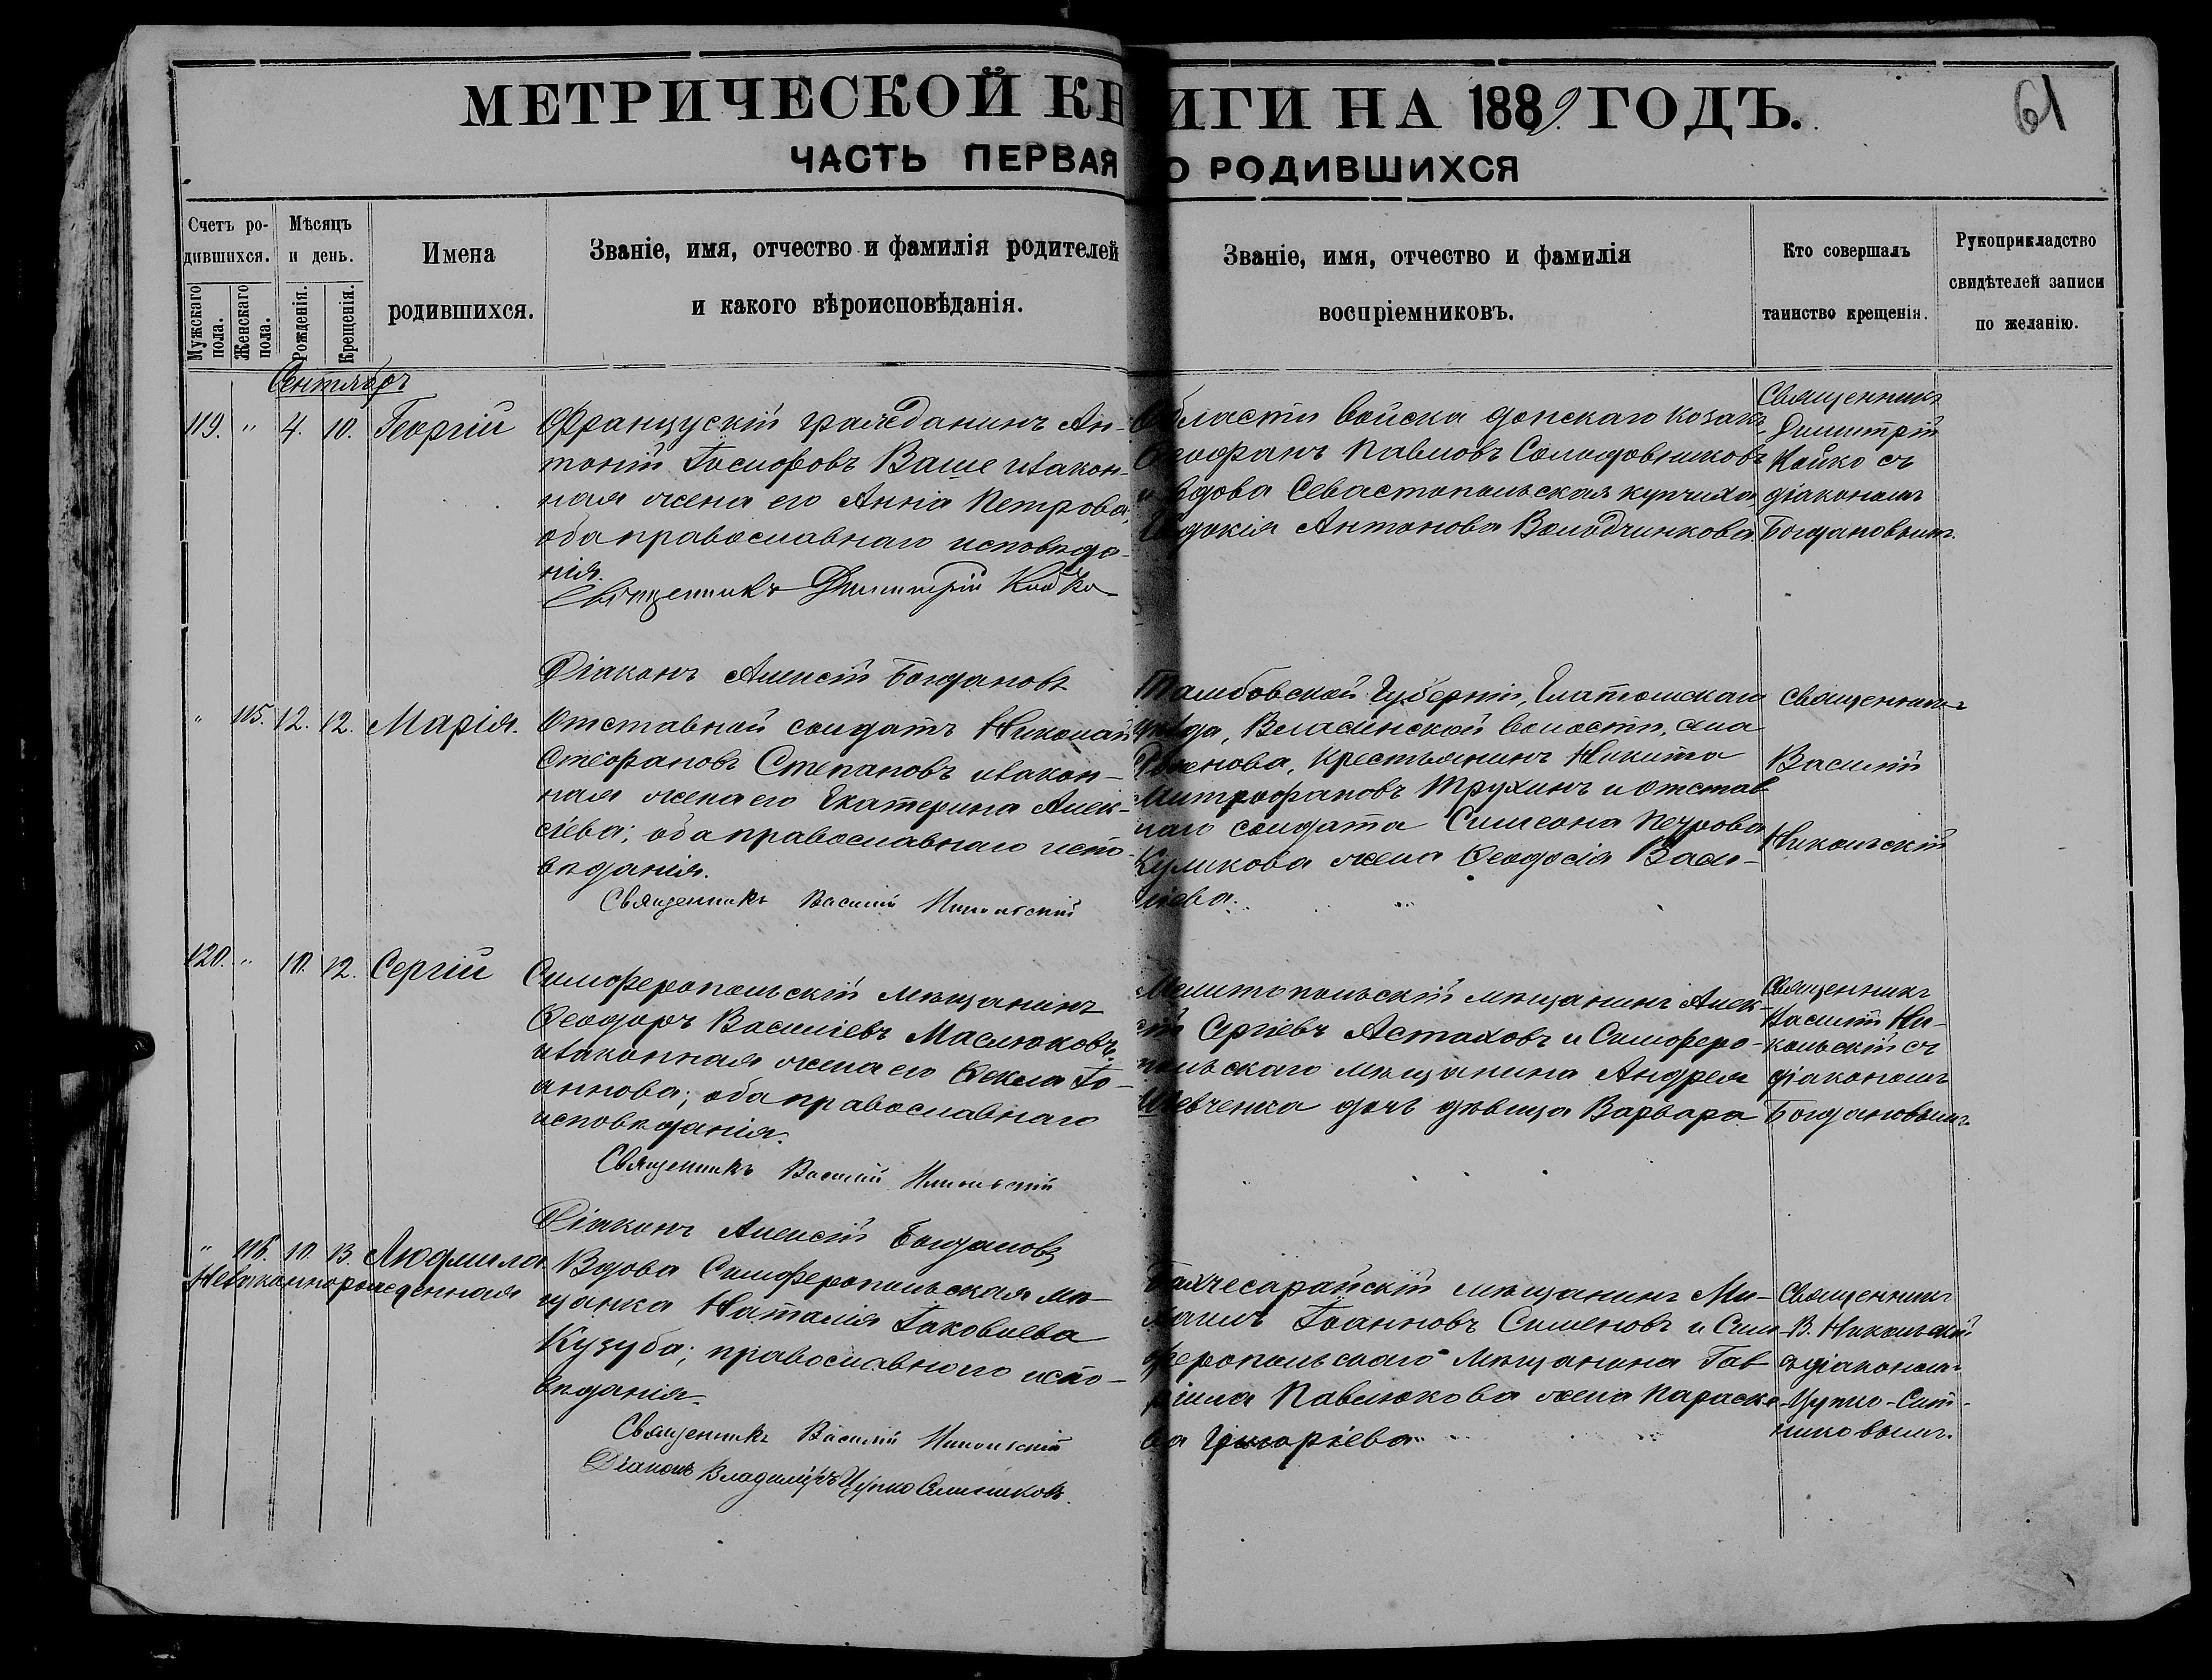 МЕТРИЧЕСКОЙ КНИГИ НА 1889 ГОДЪ.
61
ЧАСТЬ ПЕРВАЯ О РОДИВШИХСЯ
Счетъ ро-
дившихся.
Мужскаго пола.
Женскаго пола.
Мѣсяцъ
и день.
Рожденія.
Крещенія.
Имена
родившихся.
Званіе, имя, отчество и фамилія родителей
и какого вѣроисповѣданія.
Званіе, имя, отчество и фамилія
воспріемниковъ.
Кто совершалъ
таинство крещенія.
Рукоприкладство
свидѣтелей записи
по желанію.
Сентябрь
119. " 4. 10. Георгій
Французскій гражданинъ Ан-
тоній Іосифовъ Ваше и закон-
ная жена его Анна Петрова,
оба православнаго исповѣда-
нія.
Священникъ Димитрій Койко
Діаконъ Алексій Богдановъ
Области войска донскаго козакъ
Ѳеофанъ Павловъ Солодовниковъ
и вдова Севастопольская купчиха
Евдокія Антонова Володчинкова.
Священникъ
Димитрій
Койко съ
діакономъ
Богдановымъ.
" 115. 12. 12. Марія.
Отставной солдатъ Николай
Стефановъ Степановъ и закон-
ная жена его Екатерина Алек-
сіева; оба православнаго испо-
вѣданія.
Священникъ Василій Никольскій
Тамбовской Губерніи, Елатомскаго
уѣзда, волости, села
Крестьянинъ Никита
Митрофановъ Трухинъ и отстав
наго солдата Симеона Петрова
Куликова жена Ѳеодосія Васи-
ліева.
Священникъ
Василій
Никольскій
120. " 10. 12. Сергій
Симферопольскій мѣщанинъ
Ѳеодоръ Василіевъ Маслюковъ
и законная жена его Ѳекла Іо-
аннова; оба православнаго
исповѣданія.
Священникъ Василій Никольскій
Діаконъ Алексій Богдановъ
Мелитопольскій мѣщанинъ Алек-
сій Сергіевъ Астаховъ и Симферо-
польскаго мѣщанина Андрея
Шевченка дочь дѣвица Варвара
Священникъ
Василій Ни-
кольскій съ
діакономъ
Богдановымъ.
" 116. 10. 13. Людмила
Незаконнорожденная
Вдова Симферопольская мѣ-
щанка Наталія Іаковлева
Кузуба; православнаго испо-
вѣданія.
Священникъ Василій Никольскій
Діаконъ Владиміръ Цупко Ситниковъ.
Бахчесарайскій мѣщанинъ Ми-
хаилъ Іоанновъ Сименовъ и Сим
феропольскаго мѣщанина Гав
ріила Павлюкова жена Параске-
ва Григоріева
Священникъ
В. Никольскій
съ діакономъ
Цупко-Сит-
никовымъ.